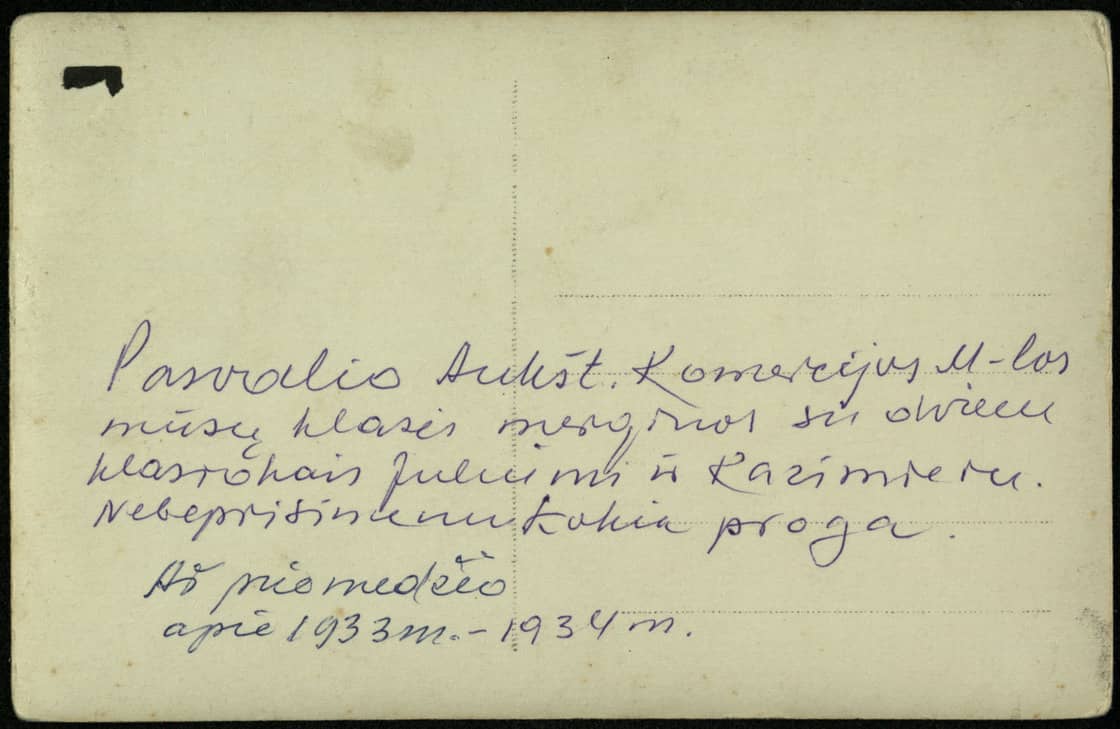 Pasvalio Aukšt. Komercijos M-los
mūsų klasės merginos su dviem
klasiokais Juliumi ir Kazimieru.
Nebeprisimenu kokia proga.
Aš prie medžio
apie 1933 m. - 1934 m.